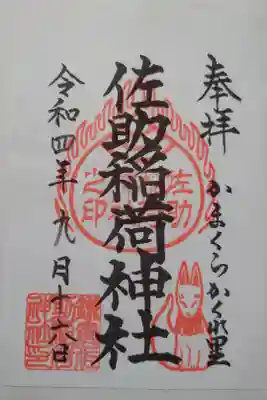 奉拝
かまくらかくれ里
佐助稲荷神社
佐助
之印
令和四年九月十六日